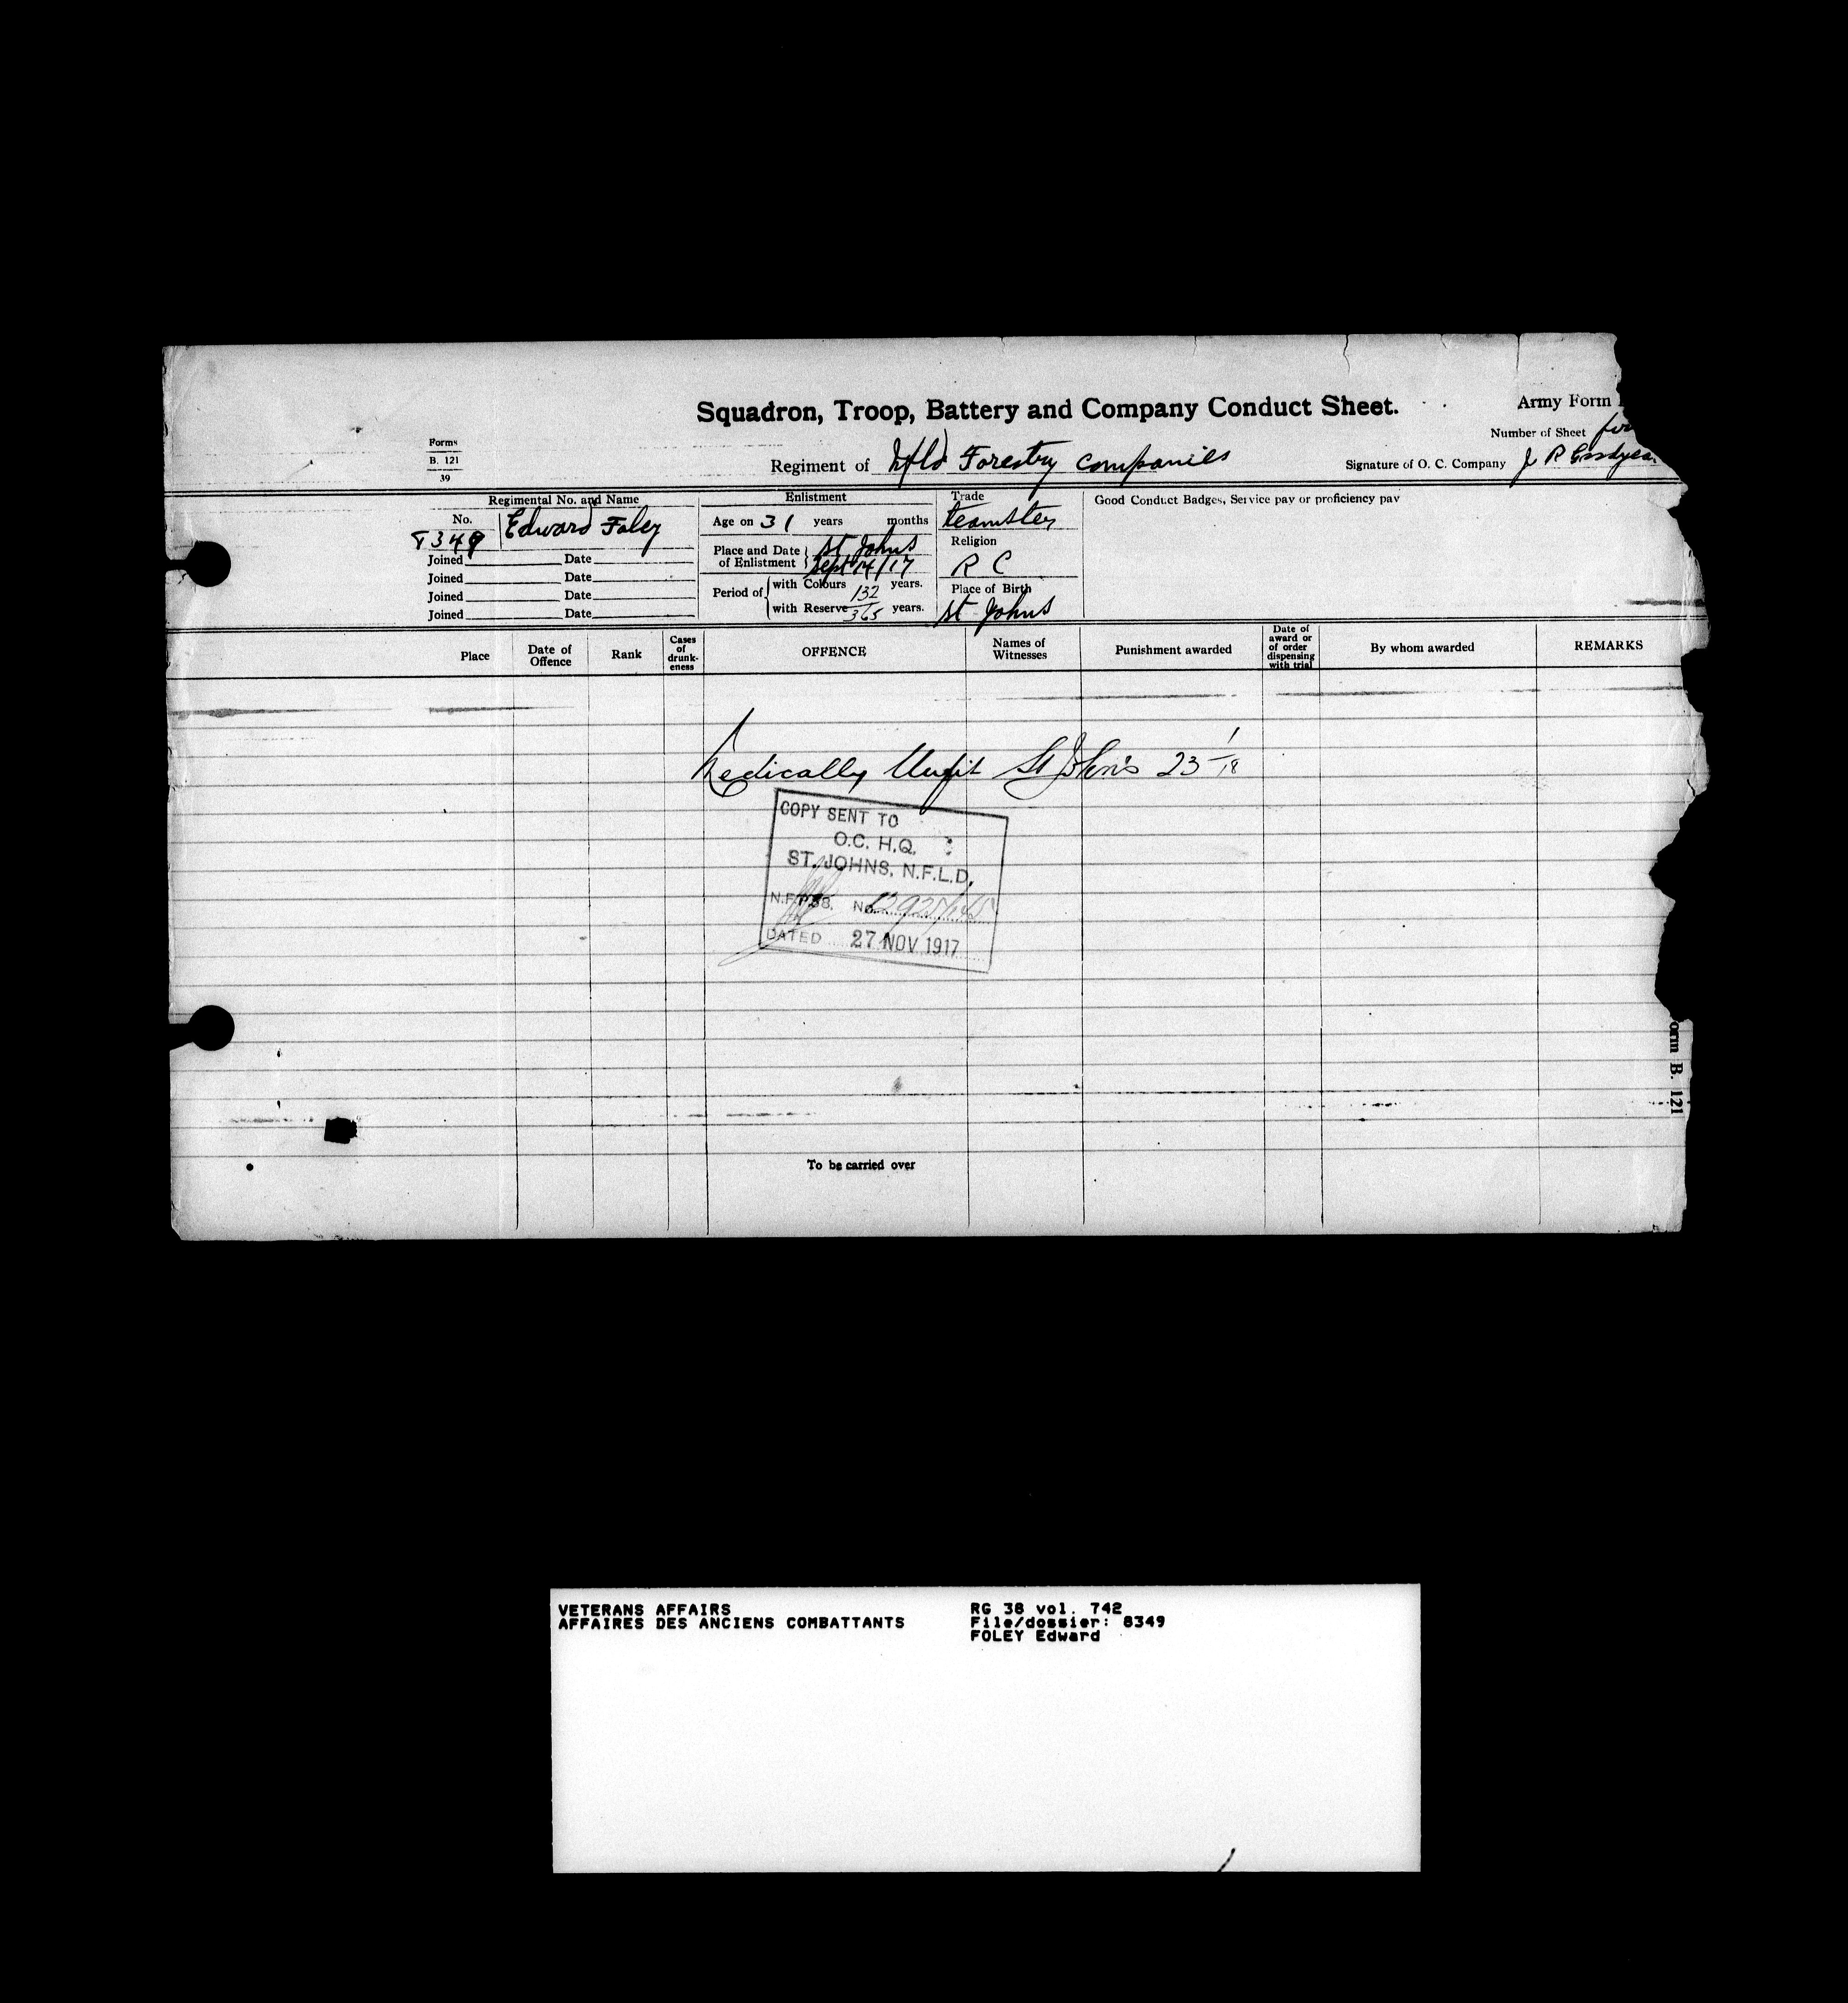 Squadron, Troop, Battery and Company Conduct Sheet.
Army Form
Forms
B. 121
39
Number of Sheet
Regiment of Nfld Forestry Companies
Signature of O. C. Company J R Goodyea
Regimental No. and Name
Enlistment
Trade
Good Conduct Badges, Service pay or proficiency pay
No.
8349
Edward Foley
Age on 31 years months
teamster
Joined Date
Joined Date
Joined Date
Joined Date
Place and Date of Enlistment St Johns Sept 14/17
Religion
R C
Period of with Colours 132 years.
with Reserve 365 years.
Place of Birth
St Johns
Place
Date of Offence
Rank
Cases of drunk-eness
OFFENCE
Names of Witnesses
Punishment awarded
Date of award or of order dispensing with trial
By whom awarded
REMARKS
Medically Unfit St John's 23 1/18
COPY SENT TO
O.C. H.Q.
ST. JOHNS, N.F.L.D.
No.
DATED 27 NOV 1917
orm B. 121
To be carried over
VETERANS AFFAIRS
AFFAIRES DES ANCIENS COMBATTANTS
RG 38 vol. 742
File/dossier: 8349
FOLEY Edward